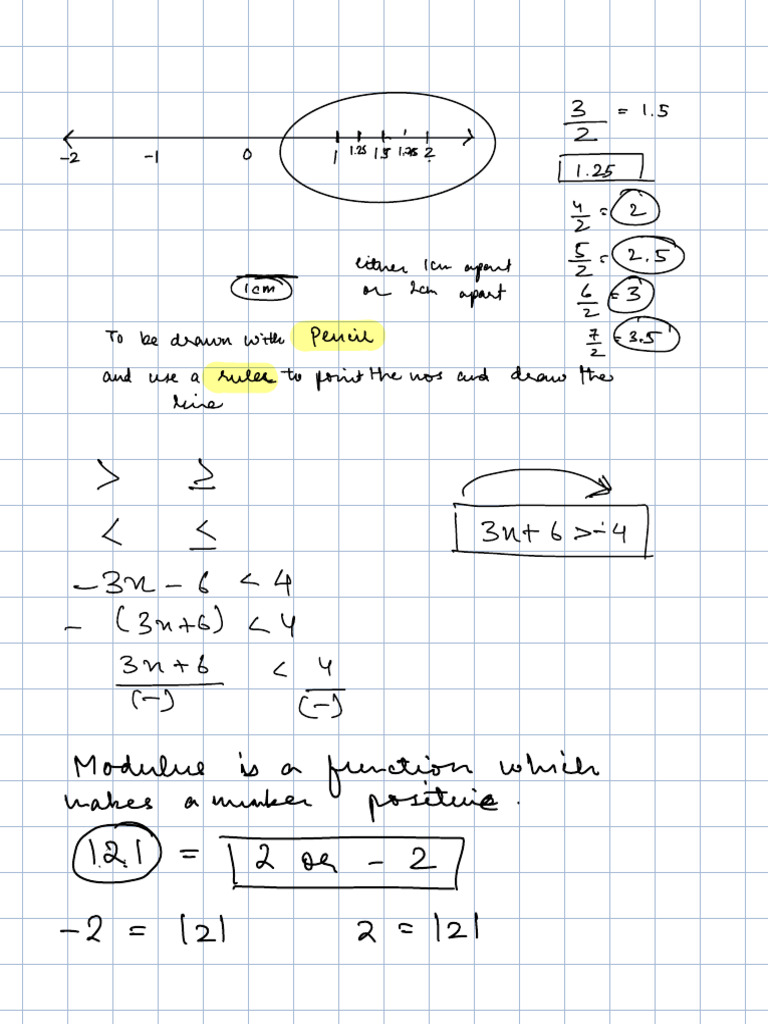 -2 -1 0 1 1.25 1.5 1.75 2
3/2 = 1.5
1.25
4/2 = 2
5/2 = 2.5
6/2 = 3
7/2 = 3.5
either 1cm apart
or 2cm apart
1cm
To be drawn with Pencil
and use a ruler to point the nos and draw the
line
> ≥
< ≤
3x + 6 > -4
-3x - 6 < 4
- (3x+6) < 4
3x + 6 / (-) < 4 / (-)
Modulus is a function which
makes a number positive.
|2| = 2 or - 2
-2 = |2| 2 = |2|